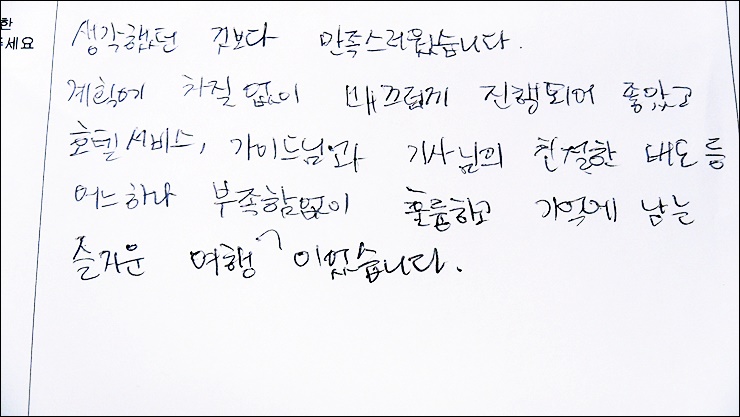 한
주세요
생각했던 것보다 만족스러웠습니다.
계획에 차질 없이 매끄럽게 진행되어 좋았고
호텔서비스, 가이드님와 기사님의 친절한 태도 등
어느하나 부족함없이 훌륭하고 기억에 남는
즐거운 여행 이었습니다.